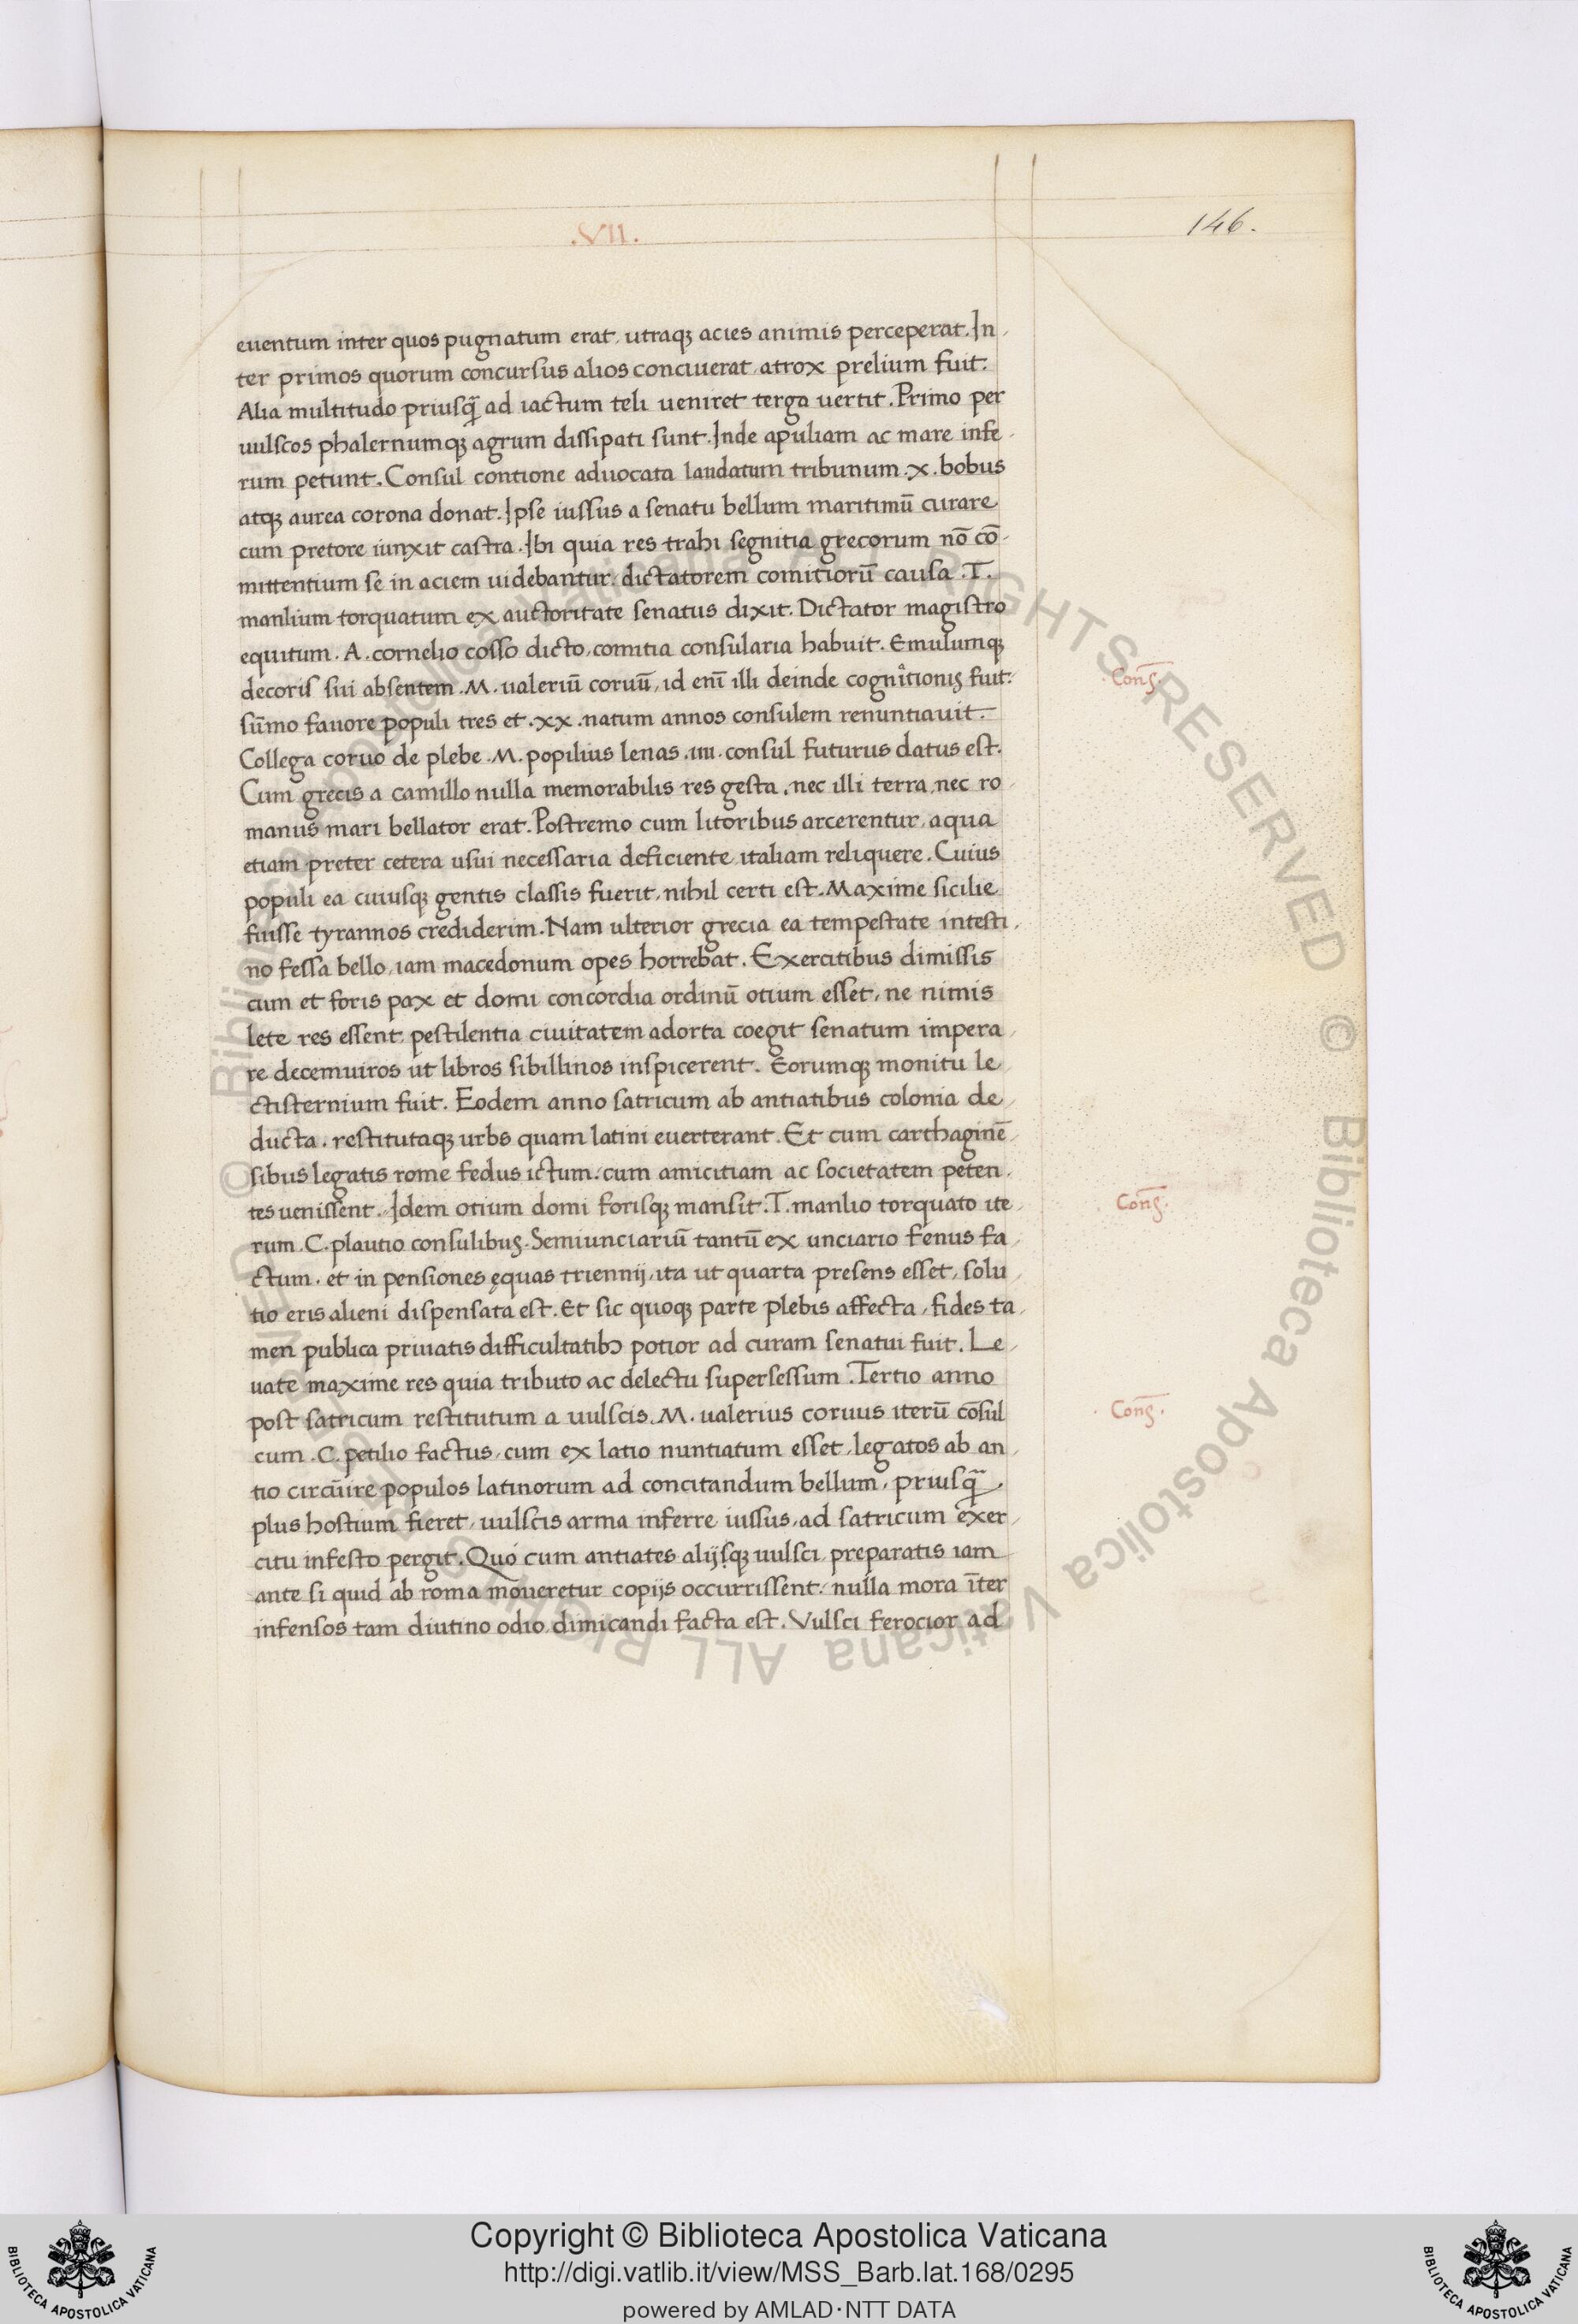 .VII.
146.
euentum inter quos pugnatum erat, utraqꝫ acies animis perceperat. In
ter primos quorum concursus alios conciuerat, atrox prelium fuit.
Alia multitudo priusq̃ ad iactum teli ueniret terga uertit. Primo per
uulscos phalernumqꝫ agrum dissipati sunt. Inde apuliam ac mare infe
rum petunt. Consul contione aduocata laudatum tribunum .x. bobus
atqꝫ aurea corona donat. Ipse iussus a senatu bellum maritimū curare
cum pretore iunxit castra. Ibi quia res trahi segnitia grecorum nō cō
mittentium se in aciem uidebantur, dictatorem comitiorū causa .T.
manlium torquatum ex auctoritate senatus dixit. Dictator magistro
equitum. A. cornelio cosso dicto, comitia consularia habuit. Emulumqꝫ
decoris sui absentem .M. ualeriū coruū, id enī illi deinde cognitionis fuit.
sūmo fauore populi tres et .xx. natum annos consulem renuntiauit.
Collega coruo de plebe .M. popilius lenas .iiii. consul futurus datus est.
Cum grecis a camillo nulla memorabilis res gesta, nec illi terra, nec ro
manus mari bellator erat. Postremo cum litoribus arcerentur, aqua
etiam preter cetera usui necessaria deficiente italiam reliquere. Cuius
populi ea cuiusqꝫ gentis classis fuerit, nihil certi est. Maxime sicilie
fuisse tyrannos crediderim. Nam ulterior grecia ea tempestate intesti
no fessa bello, iam macedonum opes horrebat. Exercitibus dimissis
cum et foris pax et domi concordia ordinū otium esset, ne nimis
lete res essent pestilentia ciuitatem adorta coegit senatum impera
re decemuiros ut libros sibillinos inspicerent. Eorumqꝫ monitu le
ctisternium fuit. Eodem anno satricum ab antiatibus colonia de
ducta, restitutaqꝫ urbs quam latini euerterant. Et cum carthaginē
sibus legatis rome fedus ictum, cum amicitiam ac societatem peten
tes uenissent. Idem otium domi forisqꝫ mansit. T. manlio torquato ite
rum .C. plautio consulibus. Semiunciariū tantū ex unciario fenus fa
ctum, et in pensiones ęquas triennij, ita ut quarta presens esset, solu
tio eris alieni dispensata est. Et sic quoqꝫ parte plebis affecta, fides ta
men publica priuatis difficultatibꝫ potior ad curam senatui fuit. Le
uate maxime res quia tributo ac delectu supersessum. Tertio anno
post satricum restitutum a uulscis .M. ualerius coruus iterū cōsul
cum .C. petilio factus, cum ex latio nuntiatum esset, legatos ab an
tio circūire populos latinorum ad concitandum bellum, priusq̃
plus hostium fieret, uulscis arma inferre iussus, ad satricum exer
citu infesto pergit. Quo cum antiates alijsqꝫ uulsci, preparatis iam
ante si quid ab roma moueretur copijs occurrissent, nulla mora īter
infensos tam diutino odio, dimicandi facta est. Vulsci ferocior ad
.Cons̄.
Cons̄.
.Cons̄.
© Biblioteca Apostolica Vaticana ALL RIGHTS RESERVED
© Biblioteca Apostolica Vaticana ALL RIGHTS RESERVED
Copyright © Biblioteca Apostolica Vaticana
http://digi.vatlib.it/view/MSS_Barb.lat.168/0295
powered by AMLAD·NTT DATA
BIBLIOTECA APOSTOLICA VATICANA
BIBLIOTECA APOSTOLICA VATICANA